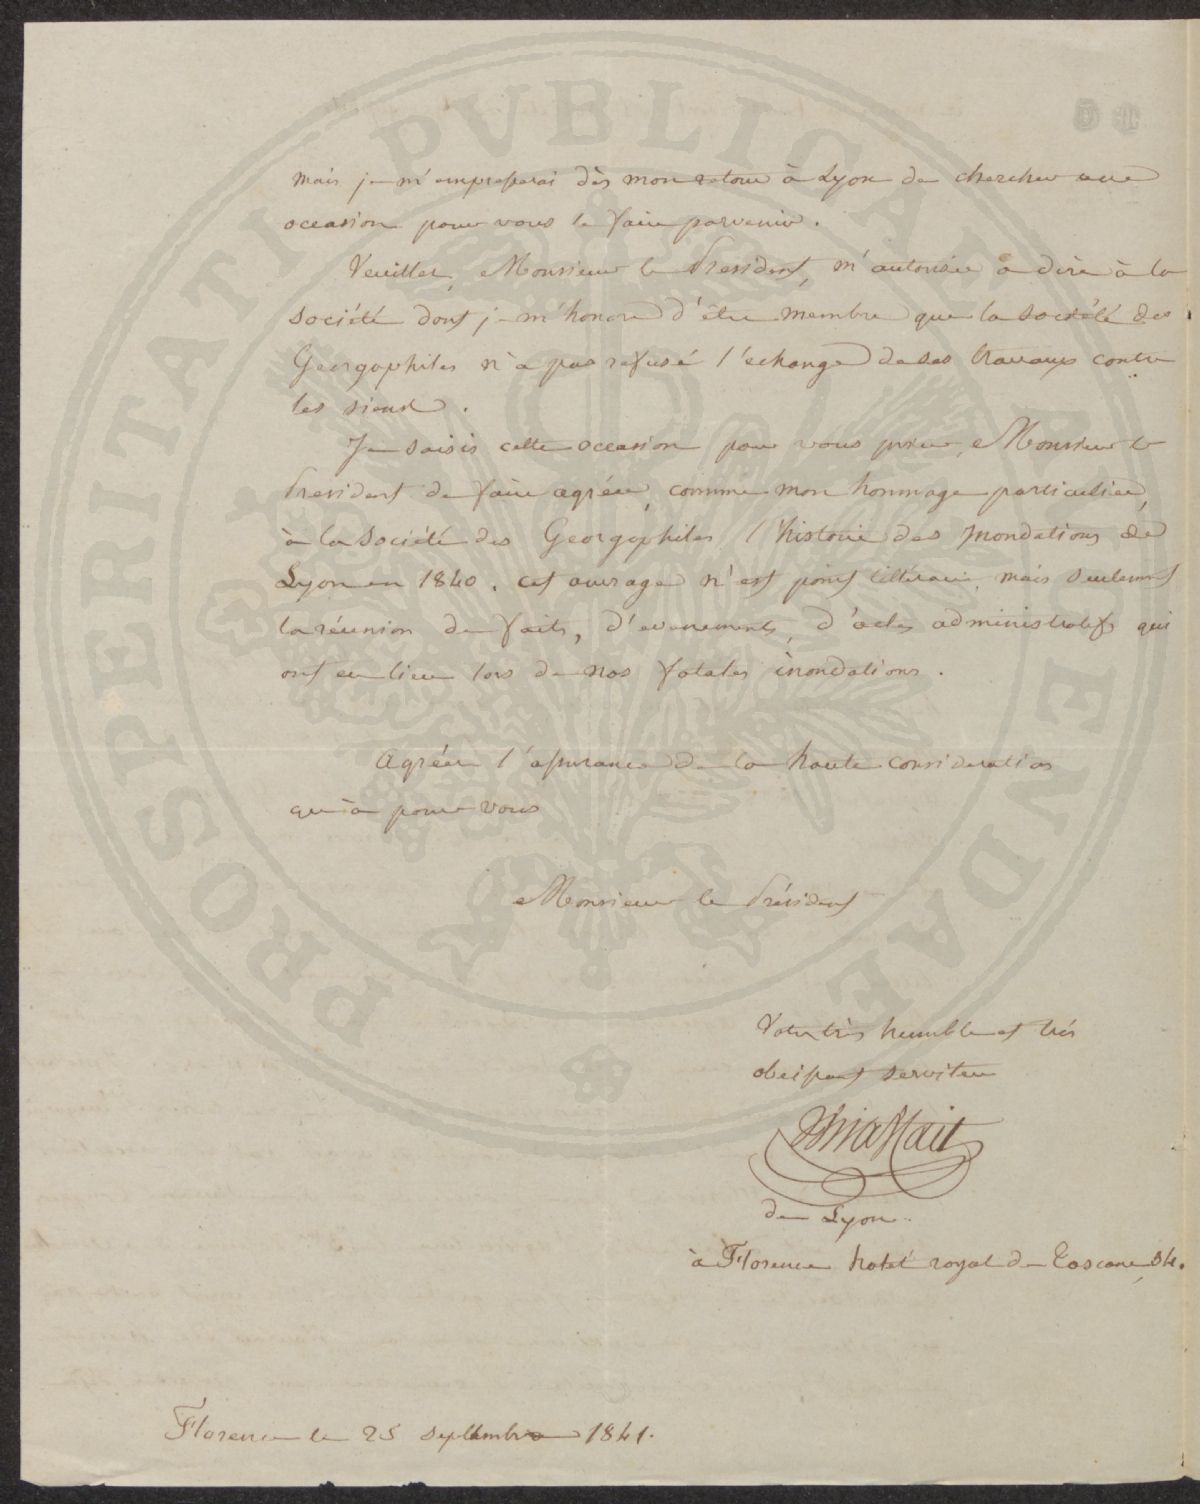 PROSPERITATI PVBLICAE AVGENDAE
mais je m'empresserai dès mon retour à Lyon de chercher une
occasion pour vous le faire parvenir.
Veuillez, Monsieur le President, m'autoriser a dire à la
société dont je m'honore d'être membre que la société des
Georgophiles n'a pas refusé l'echange de ses travaux contre
les siens.
Je saisis cette occasion pour vous prier, Monsieur le
President de faire agréer, comme mon hommage particulier,
à la société des Georgophiles l'histoire des Inondations de
Lyon en 1840. cet ouvrage n'est point littéraire, mais seulement
la réunion de faits, d'evenements, d'actes administratifs qui
ont eu lieu lors de nos fatales inondations.
Agréer l'assurance de la haute consideration
qu'à pour vous
Monsieur le Président
Votre très humble et très
obeissant serviteur
de Lyon.
à Florence hotel royal de Toscane
Florence le 25 septembre 1841.